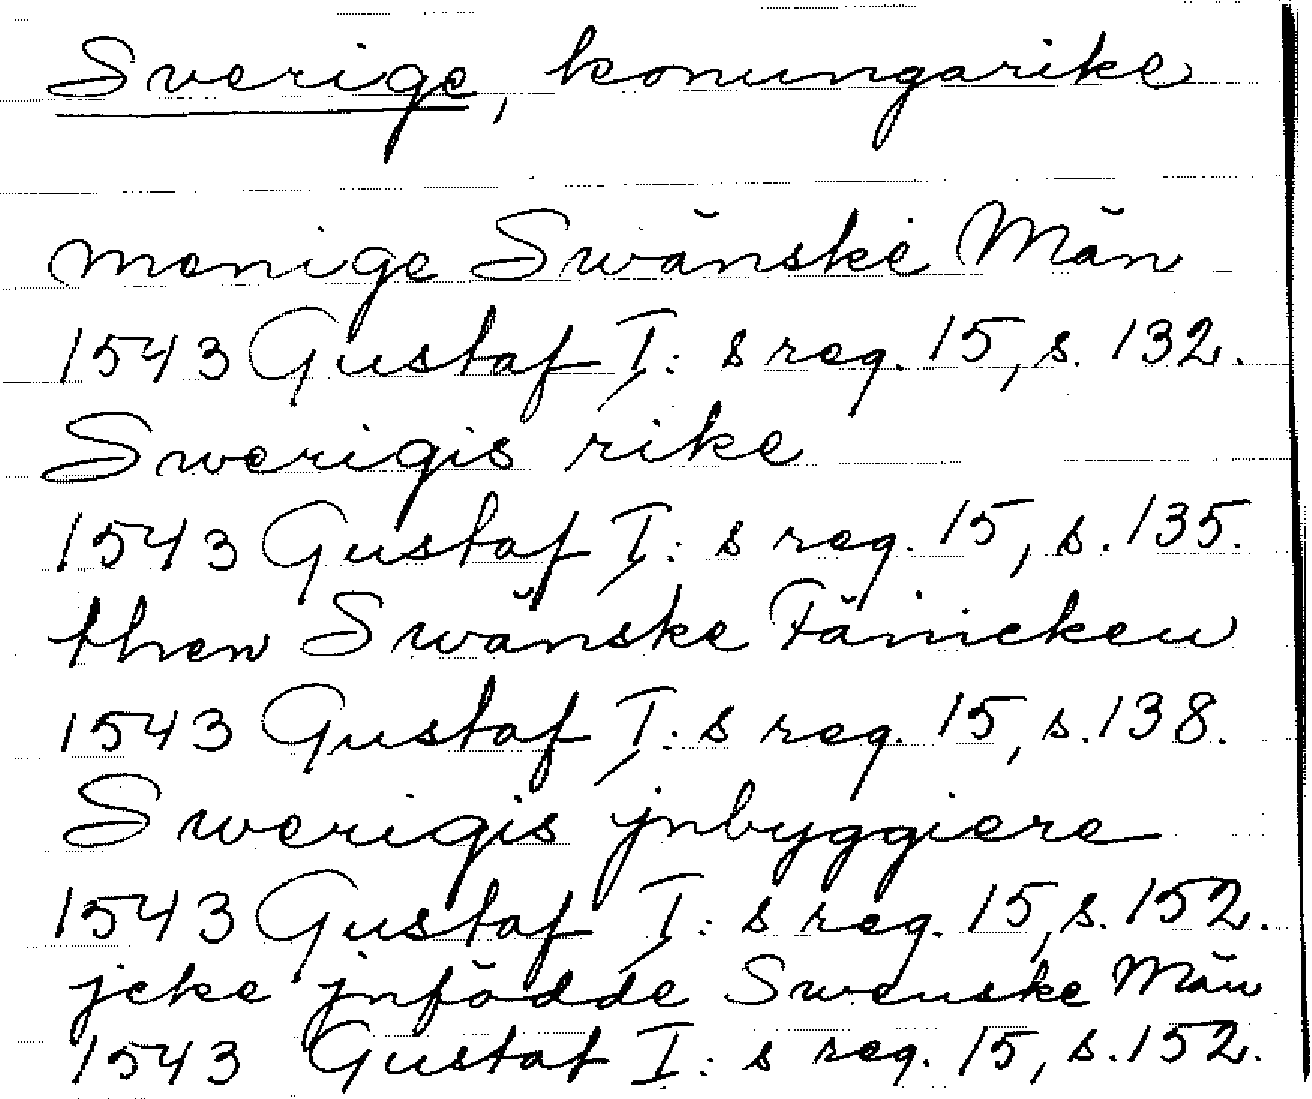 Sverige, konungarike
menige Swänske Män
1543 Gustaf I:s reg. 15, s. 132.
Swerigis rike
1543 Gustaf I:s reg. 15, s. 135.
then Swänske Fänicken
1543 Gustaf I:s reg. 15, s. 138.
Swerigis jnbyggiere
1543 Gustaf I:s reg. 15, s. 152.
jcke jnfödde Swenske Män
1543 Gustaf I:s reg. 15, s. 152.